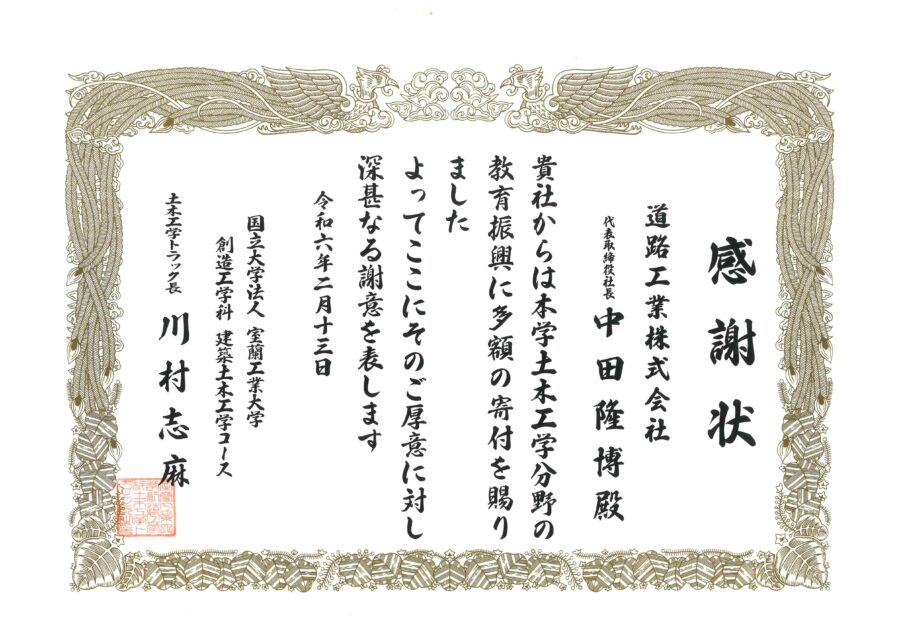 感謝状
道路工業株式会社
代表取締役社長 中田隆博殿
貴社からは本学土木工学分野の
教育振興に多額の寄付を賜り
ました
よってここにそのご厚意に対し
深甚なる謝意を表します
令和六年二月十三日
国立大学法人 室蘭工業大学
創造工学科 建築土木工学コース
土木工学トラック長 川村志麻